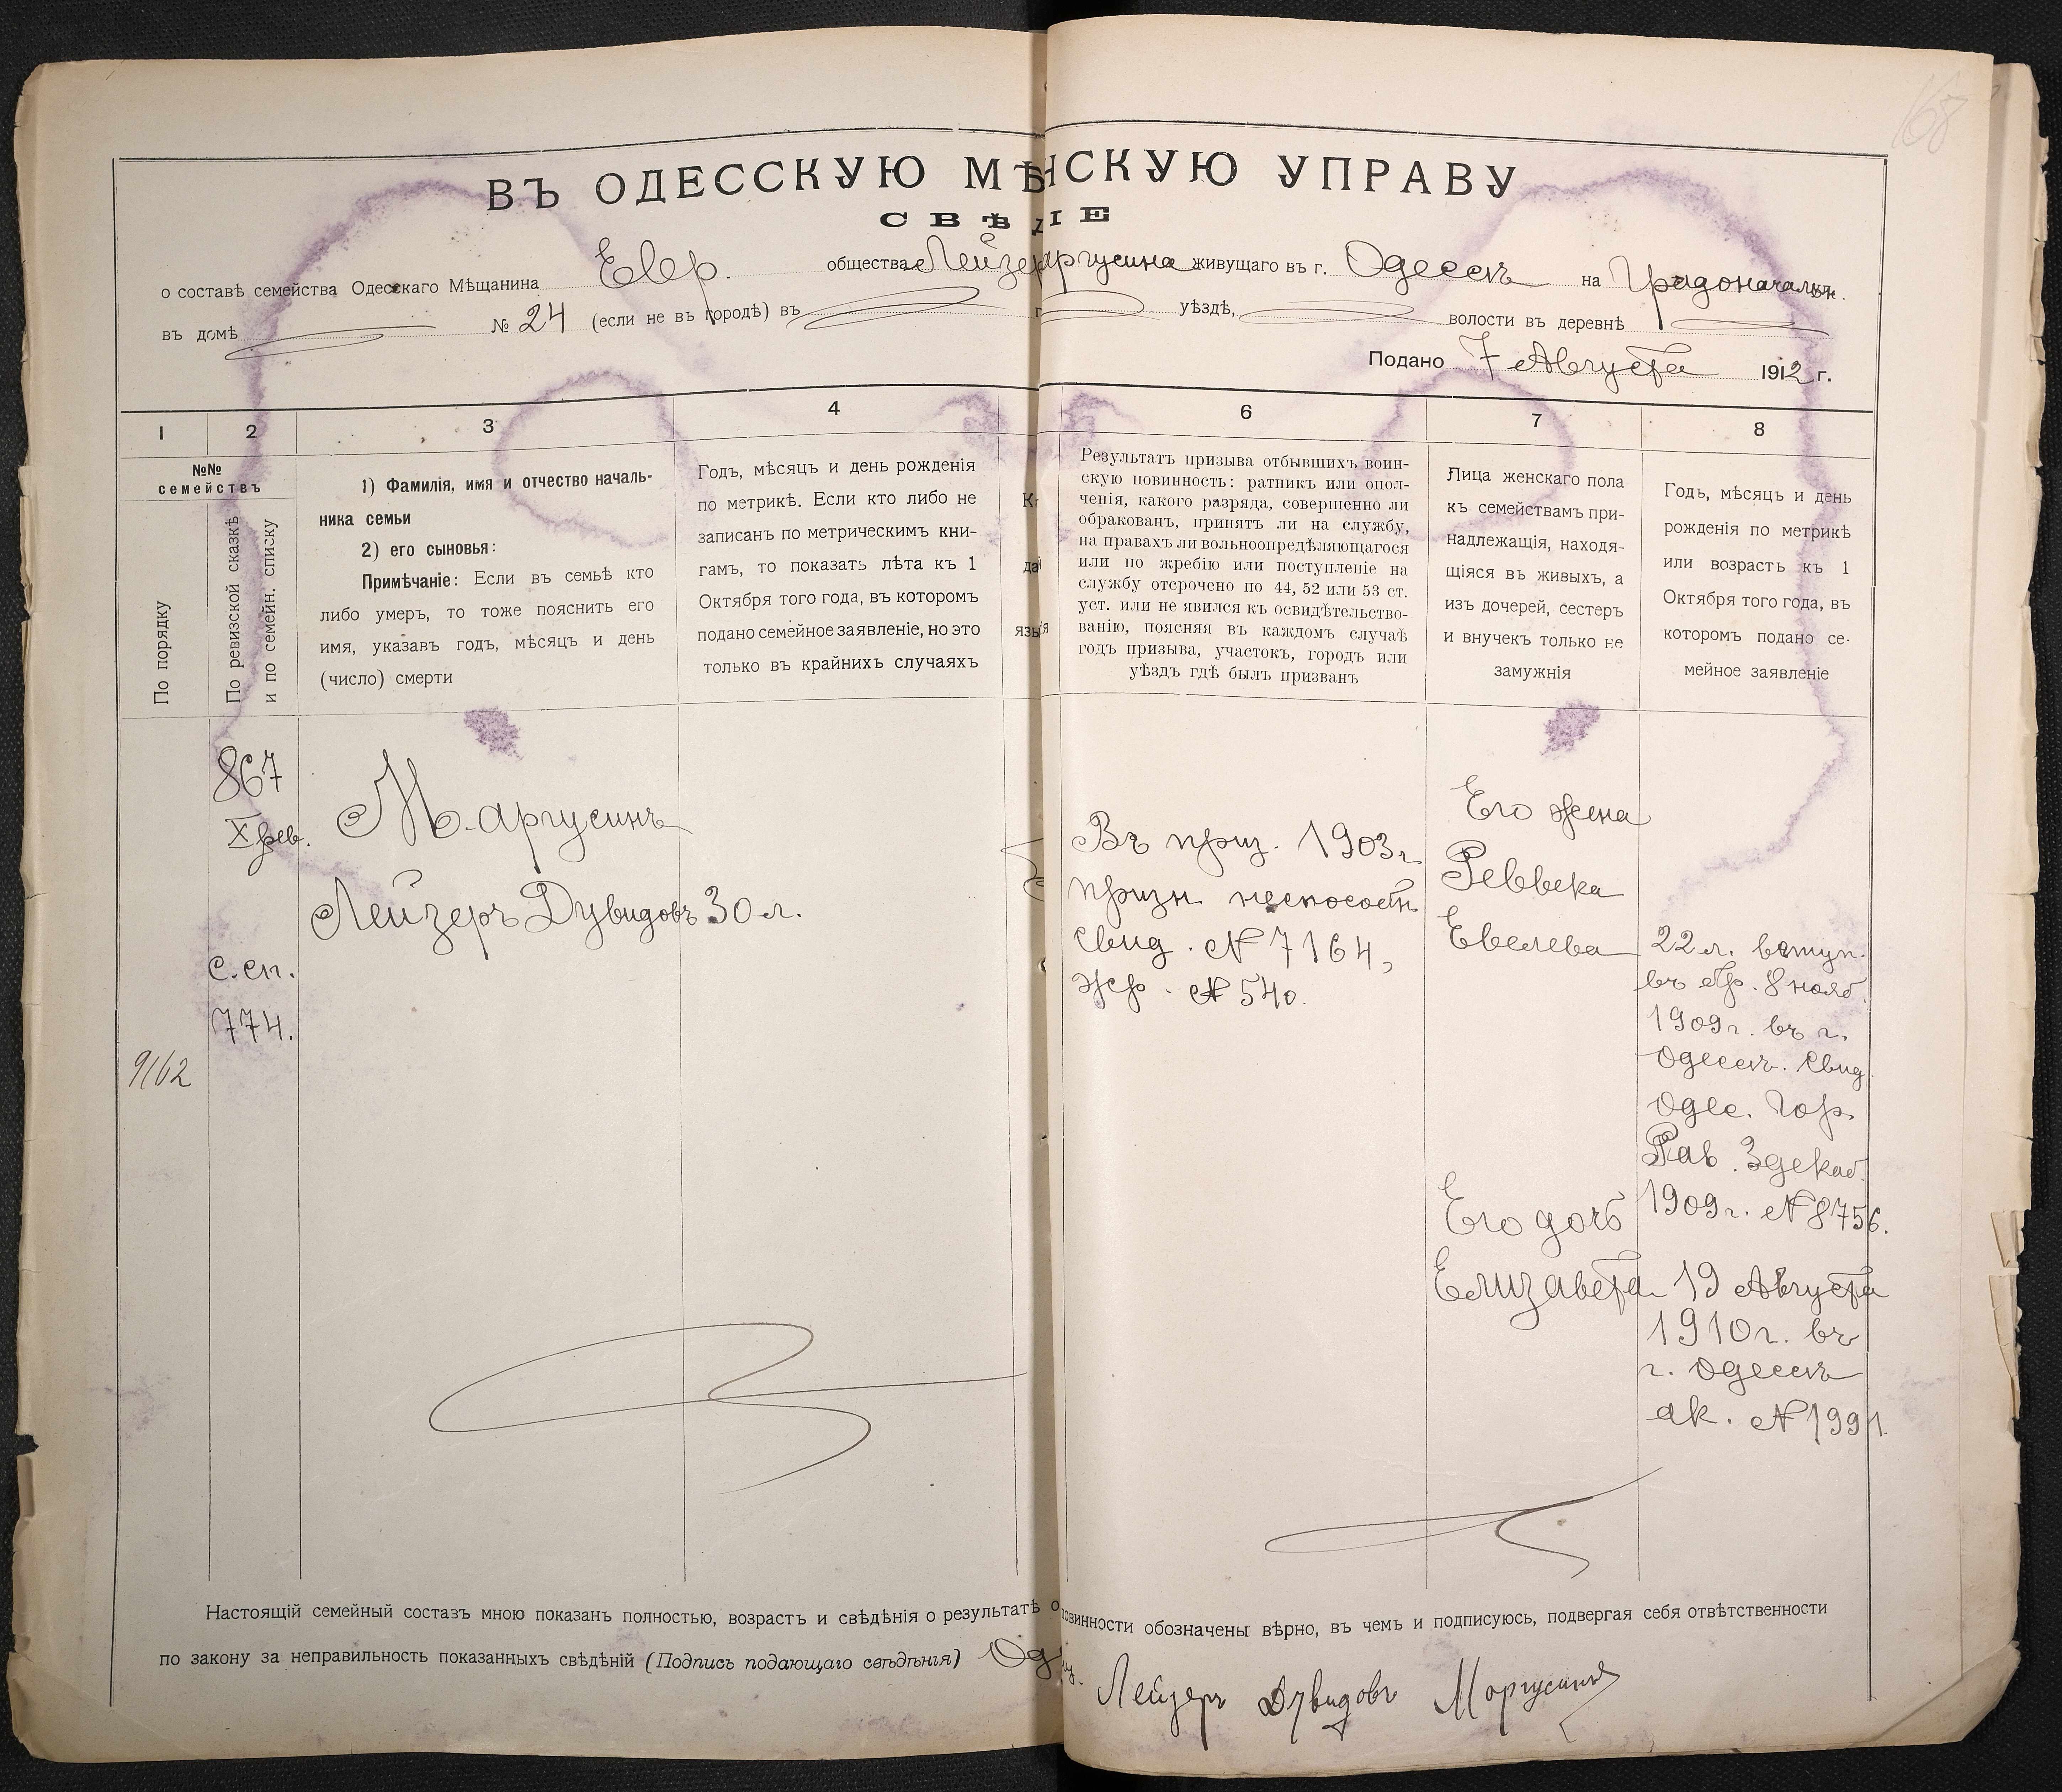 168
ВЪ ОДЕССКУЮ МѢ НСКУЮ УПРАВУ
СВѢД ІЕ
о составѣ семейства Одесскаго Мѣщанина Евр. общества Лейзера Маргусина живущаго въ г. Одессѣ на Градоначальн.
въ домѣ № 24 (если не въ городѣ) въ уѣздѣ, волости въ деревнѣ
Подано 7 Августа 1912 г.
1 2 3 4 6 7 8
№№ семействъ
По порядку
По ревизской сказкѣ и по семейн. списку
1) Фамилія, имя и отчество началь-
ника семьи
2) его сыновья:
Примѣчаніе: Если въ семьѣ кто
либо умеръ, то тоже пояснить его
имя, указавъ годъ, мѣсяцъ и день
(число) смерти
Годъ, мѣсяцъ и день рожденія
по метрикѣ. Если кто либо не
записанъ по метрическимъ кни-
гамъ, то показать лѣта къ 1
Октября того года, въ которомъ
подано семейное заявленіе, но это
только въ крайнихъ случаяхъ
Результатъ призыва отбывшихъ воин-
скую повинность: ратникъ или опол-
ченія, какого разряда, совершенно ли
обракованъ, принятъ ли на службу,
на правахъ ли вольноопредѣляющагося
или по жребію или поступленіе на
службу отсрочено по 44, 52 или 53 ст.
уст. или не явился къ освидѣтельство-
ванію, поясняя въ каждомъ случаѣ
годъ призыва, участокъ, городъ или
уѣздъ гдѣ былъ призванъ
Лица женскаго пола
къ семействамъ при-
надлежащія, находя-
щіяся въ живыхъ, а
изъ дочерей, сестеръ
и внучекъ только не
замужнія
Годъ, мѣсяцъ и день
рожденія по метрикѣ
или возрасть къ 1
Октября того года, въ
котором подано се-
мейное заявленіе
9162
867
X рев.
с. сп.
774.
Маргусинъ
Лейзеръ Дувидовъ 30 л.
Въ приз. 1903 г.
призн. неспособн.
свид. № 7164,
жр. № 540.
Его жена
Реввека
Евелева
22 л. вступ.
въ бр. 8 нояб.
1909 г. въ г.
Одессѣ. Свид.
Одес. Гор.
Рав. 3 декаб.
1909 г. № 8756.
Его дочь
Елизавета
19 Августа
1910 г. въ
г. Одессѣ
ак. № 1991.
Настоящій семейный составъ мною показанъ полностью, возрастъ и свѣдѣнія о результатѣ о овинности обозначены вѣрно, въ чемъ и подписуюсь, подвергая себя отвѣтственности
по закону за неправильность показанныхъ свѣдѣній (Подпись подающаго свѣдѣнія) Од
Лейзеръ Дувидовъ Моргусинъ